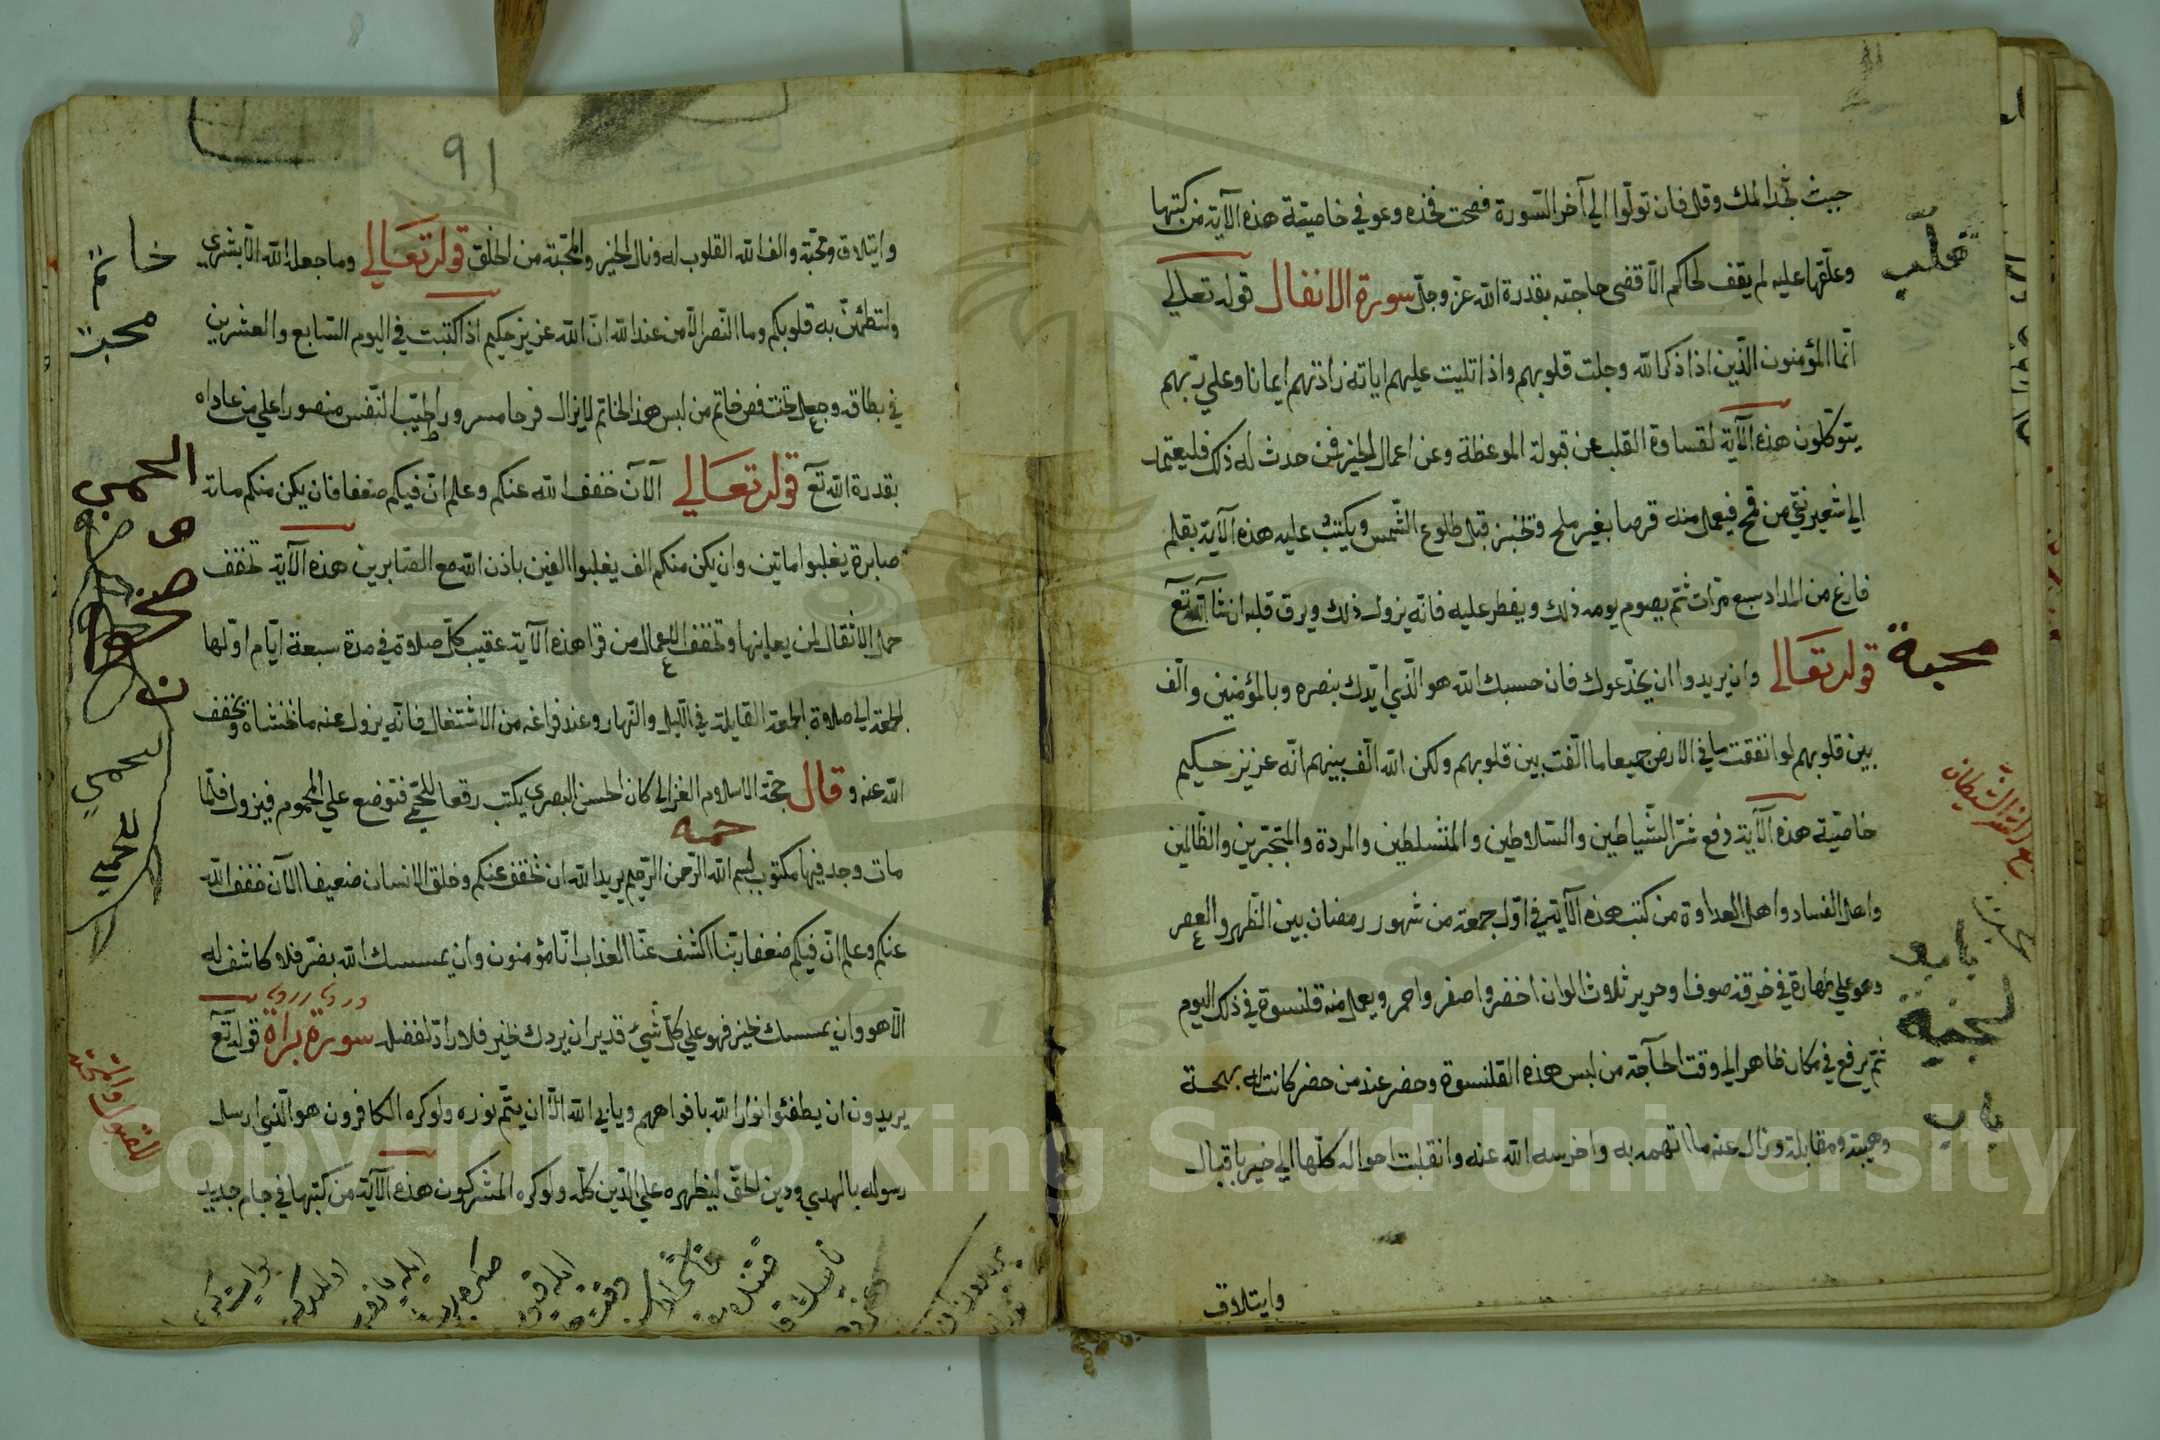 حيث تجد المك وقل فان تولوا الي آخر السورة فصحت فخذه وعوفي خاصية هذه الآية من كتبها
وعلقها عليه لم يقف لحاكم الا قضى حاجته بقدرة الله عز وجل سورة الانفال قوله تعالي
انما المؤمنون الذين اذا ذكر الله وجلت قلوبهم واذا تليت عليهم اياته زادتهم ايمانا وعلي ربهم
يتوكلون هذه الآية لقساوة القلب عن قبولة الموعظة وعن اعمال الخير فمن حدث له ذلك فليعتمد
الي شعير نقي من قمح فيعمل منه قرصا بغير ملح وتخبز قبل طلوع الشمس ويكتب عليه هذه الآية بقلم
فارغ من المداد سبع مرات ثم يصوم يومه ذلك ويفطر عليه فانه يزول ذلك ويرق قلبه ان شآ الله تع
قوله تعالي وان يريدوا ان يخدعوك فان حسبك الله هو الذي ايدك بنصره وبالمؤمنين والف
بين قلوبهم لو انفقت ما في الارض جميعا ما الفت بين قلوبهم ولكن الله الف بينهم انه عزيز حكيم
خاصية هذه الآية دفع شر الشياطين والسلاطين والمتسلطين والمردة والمتجبرين والظالمين
واهل الفساد واهل العداوة من كتب هذه الآيتي في اول جمعة من شهور رمضان بين الظهر والعصر
وهو علي طهارة في خرقة صوف او حرير ثلاث الوان اخضر واصفر واحمر ويعمل منه قلنسوة في ذلك اليوم
ثم يرفع في مكان طاهر الي وقت الحآجة من لبس هذه القلنسوة وحضر عند من حضر كانت له بهجة
وهيبة ومقابلة وزال عنه ما اتهمه به واخرسه الله عنه وانقلبت احواله كلها الي خير باقبال
وايتلاف
قلب
محبة
91
وايتلاق ومحبة والف الله القلوب له ونال الخير والمحبة من الخلق قوله تعالي وما جعله الله الا بشري
ولتطمئن به قلوبكم وما النصر الا من عند الله ان الله عزيز حكيم اذا كتبت في اليوم السابع والعشرين
في بطاقه وجعل تحت فص خاتم من لبس هذا الخاتم لا يزال فرحا مسرورا طيب النفس منصورا علي من عاداه
بقدرة الله تع قوله تعالي الآن خفف الله عنكم وعلم ان فيكم ضعفا فان يكن منكم مائة
صابرة يغلبوا ماتين وان يكن منكم الف يغلبوا الفين باذن الله مع الصابرين هذه الآية تخفف
حمل الاثقال لمن يعاينها وتخفف العمل من قرا هذه الآية عقيب كل صلاة في مدة سبعة ايام اولها
الجمعة الي صلاة الجمعة القابلة في الليل والنهار وعند فراغه من الاشتغال فانه يزول عنه ما تخشاه ويخفف
الله عنه و قال حجة الاسلام الغزالي كان الحسن البصري يكتب رقعا للحمي فتوضع علي المحموم فيزول فلما
مات وجد فيها مكتوب بسم الله الرحمن الرحيم يريد الله ان يخفف عنكم وخلق الانسان ضعيفا الآن خفف الله
عنكم وعلم ان فيكم ضعفا ربنا اكشف عنا العذاب انا مؤمنون وان يمسسك الله بضر فلا كاشف له
الا هو وان يمسسك بخير فهو علي كل شيئ قدير ان يردك بخير فلا راد لفضله سورة براة قوله تع
يريدون ان يطفئوا نور الله بافواههم ويابي الله الا ان يتم نوره ولو كره الكافرون هو الذي ارسل
رسوله بالهدي ودين الحق ليظهره علي الدين كله ولو كره المشركون هذه الآية من كتبها في جام جديد
حمه
خاتم
محبت
Copyright © King Saud University
1957